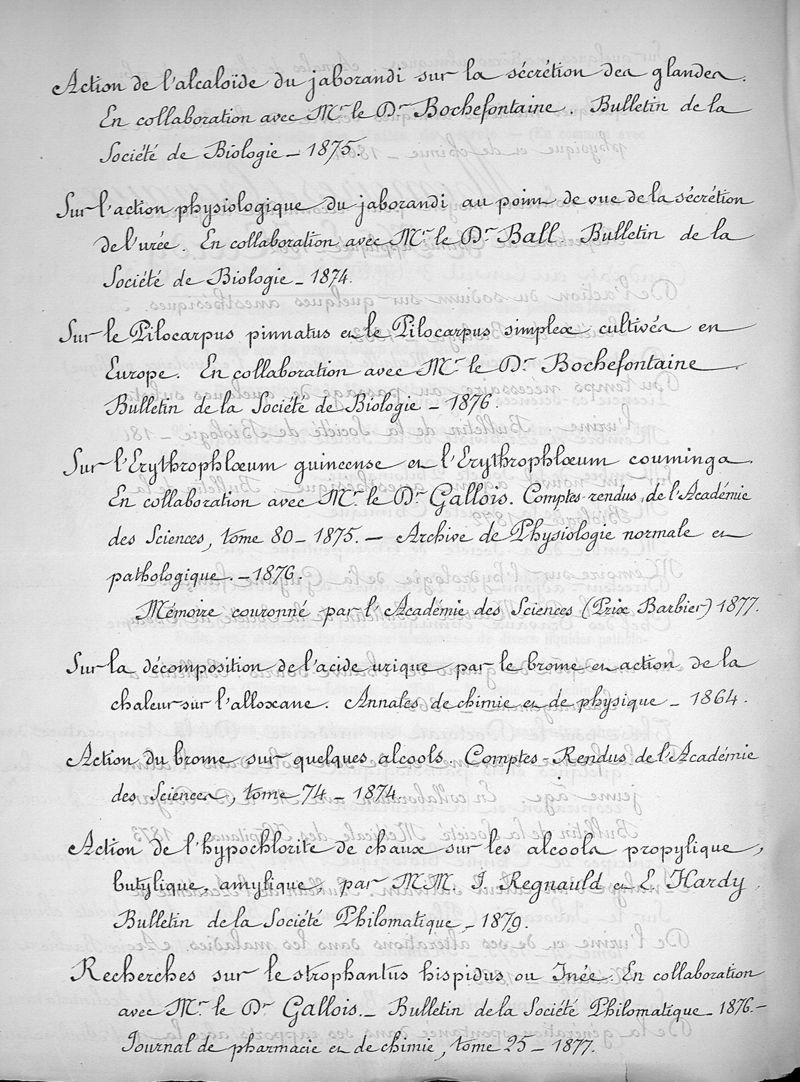 Action de l'alcaloïde du jaborandi sur la sécrétion des glandes.
En collaboration avec Mr. le Dr. Bochefontaine. Bulletin de la
Société de Biologie – 1875.
Sur l'action physiologique du jaborandi au point de vue de la sécrétion
de l'urée. En collaboration avec Mr. le Dr. Ball. Bulletin de la
Société de Biologie – 1874.
Sur le Pilocarpus pinnatus et le Pilocarpus simplex, cultivés en
Europe. En collaboration avec Mr. le Dr. Bochefontaine.
Bulletin de la Société de Biologie – 1876.
Sur l'Erythrophlœum guineense et l'Erythrophlœum couminga.
En collaboration avec Mr. le Dr. Gallois. Comptes-rendus de l'Académie
des Sciences, tome 80 – 1875. – Archive de Physiologie normale et
pathologique. – 1876.
Mémoire couronné par l'Académie des Sciences (Prix Barbier) 1877.
Sur la décomposition de l'acide urique par le brome et action de la
chaleur sur l'alloxane. Annales de chimie et de physique – 1864.
Action du brome sur quelques alcools. Comptes-Rendus de l'Académie
des Sciences, tome 74 – 1874
Action de l'hypochlorite de chaux sur les alcools propylique,
butylique, amylique, par MM. J. Regnauld et E. Hardy.
Bulletin de la Société Philomatique – 1879.
Recherches sur le strophantus hispidus ou Inée. En collaboration
avec Mr. le Dr. Gallois. – Bulletin de la Société Philomatique – 1876. –
Journal de pharmacie et de chimie, tome 25 – 1877.